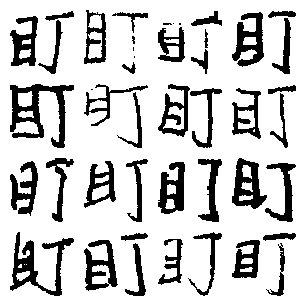 盯盯盯盯
盯盯盯盯
盯盯盯盯
盯盯盯盯